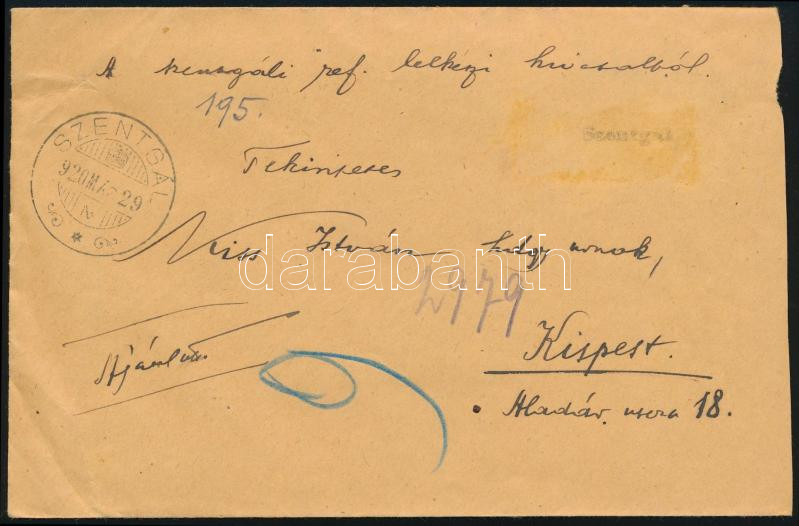 A szentgáli ref. lelkészi hivatalból.
195.
Szentgál
SZENTGÁL
920 MÁJ 29
Tekintetes
Kiss István urnak,
darabanth
2979
Ajánlva
Kispest.
Aladár utcza 18.